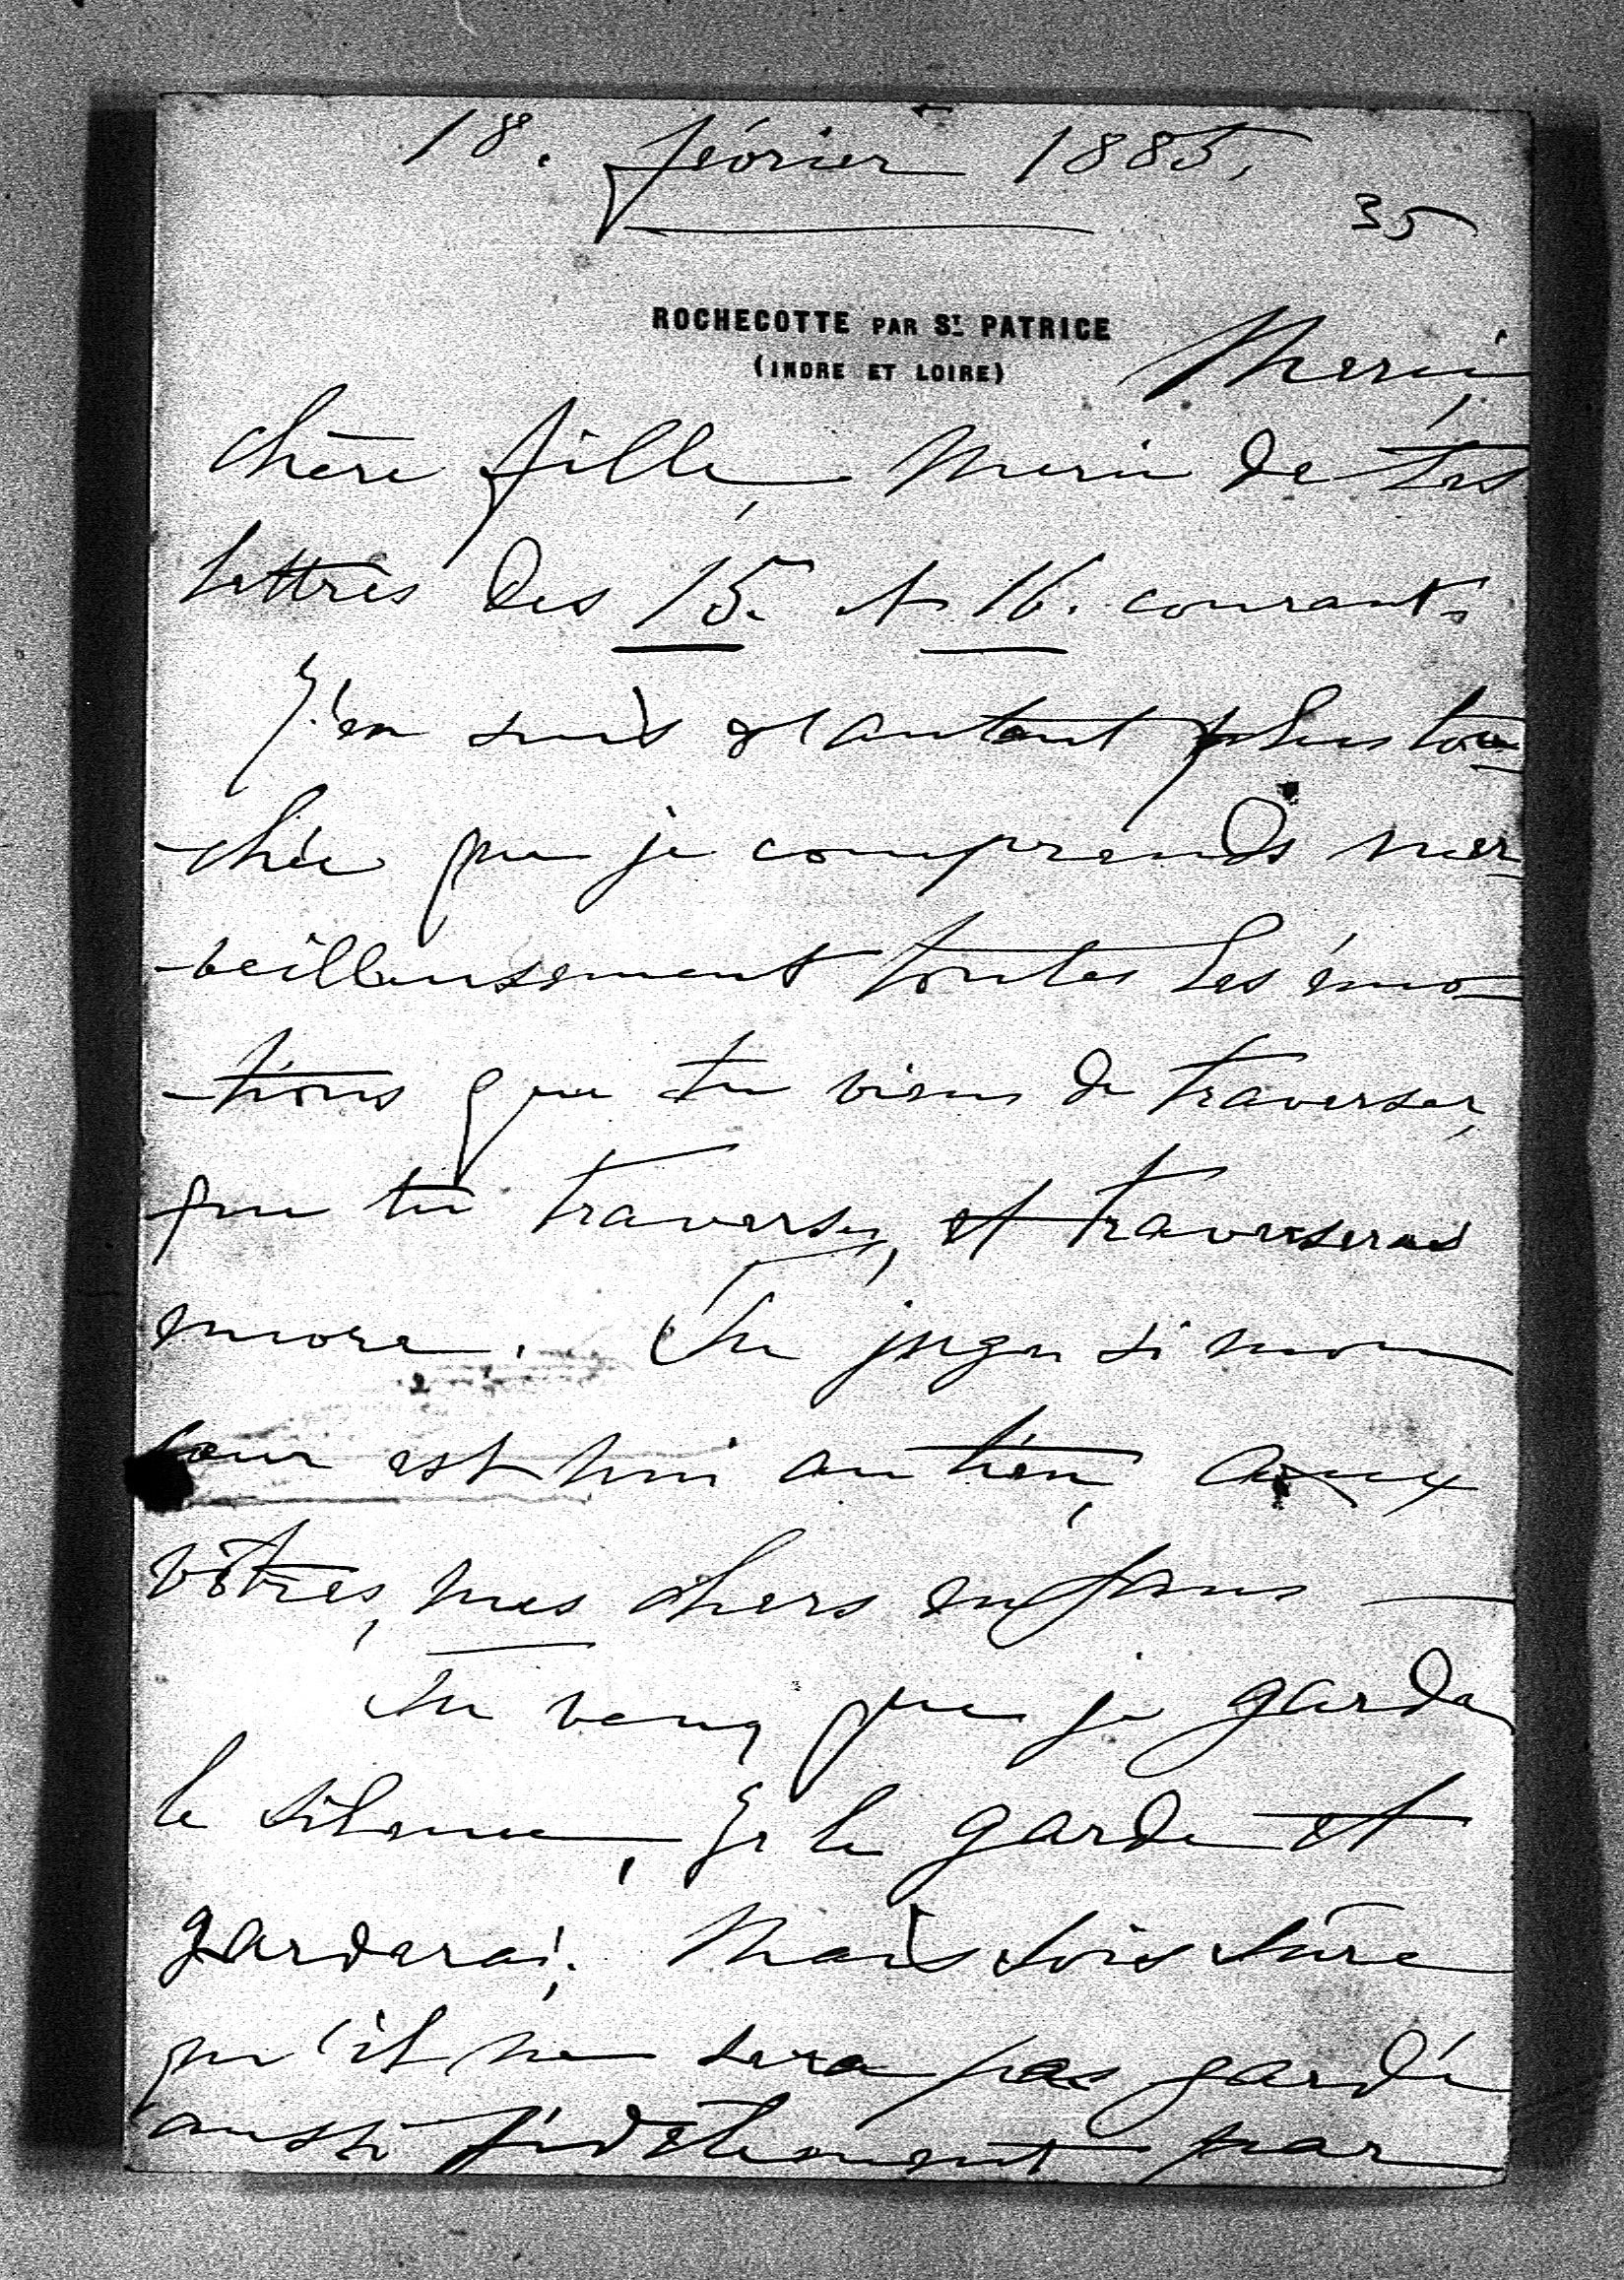 18. février 1885.
35
ROCHECOTTE PAR ST PATRICE
(INDRE ET LOIRE)
Merci,
chère fille, merci de tes
lettres des 15. et 16. courant.
J'en suis d'autant plus tou-
-chée que je comprends mer-
-veilleusement toutes les émo-
-tions que tu viens de traverser,
que tu traverses, et traverseras
encore. Tu juges si mon
cœur est uni au tien, aux
vôtres, mes chers enfans —
Tu veux que je garde
le silence, Je le garde et
garderai. Mais sois sûre
qu'il ne sera pas gardé
aussi fidèlement par